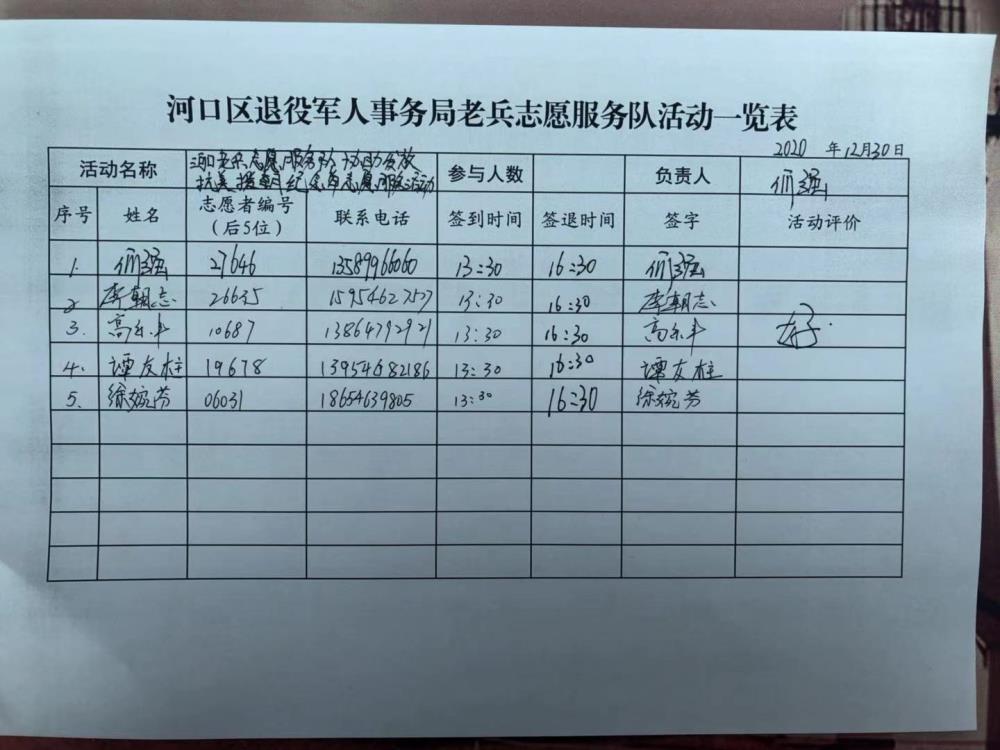 河口区退役军人事务局老兵志愿服务队活动一览表
2020 年12月30日
活动名称 老兵志愿服务队协助发放 参与人数 负责人 强
抗美援朝纪念章志愿服务活动
序号 姓名 志愿者编号（后5位） 联系电话 签到时间 签退时间 签字 活动评价
1. 强 27646 13589966060 13:30 16:30 强
2 李朝志 26635 15954627527 13:30 16:30 李朝志
3. 高乐丰 10687 13864792921 13:30 16:30 高乐丰 好.
4. 谭友柱 19678 13954682186 13:30 16:30 谭友柱
5. 徐婉芳 06031 18654639805 13:30 16:30 徐婉芳